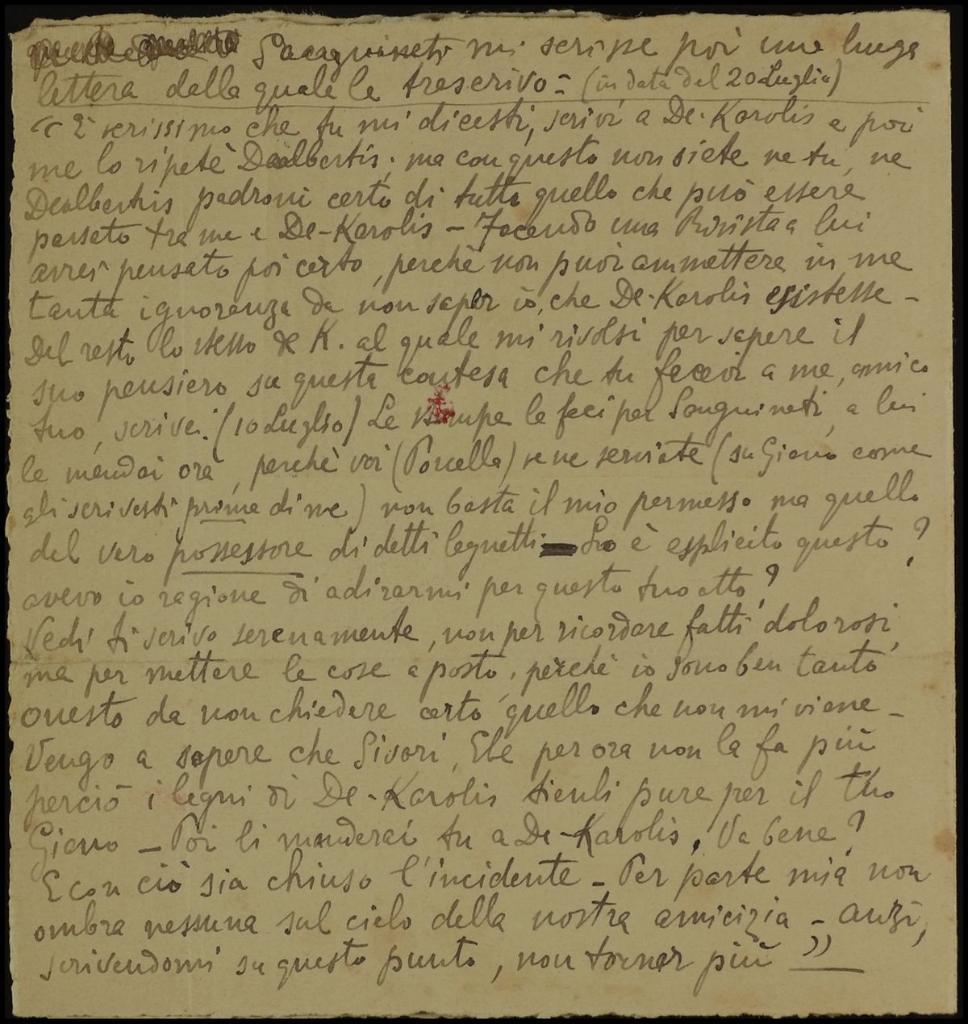 Sacaguineto mi scrisse poi una lunga
lettera dalla quale le trascrivo = (in data del 20 Luglio)
"È verissimo che tu mi dicesti, scrivi a De-Karolis e poi
me lo ripetè Dealbertis; ma con questo non siete ne tu, ne
Dealbertis padroni certo di tutto quello che può essere
passato tra me e De-Karolis - Facendo una Rivista a lui
avrei pensato poi certo, perchè non puoi ammettere in me
tanta ignoranza da non saper io, che De-Karolis esistesse -
Del resto lo stesso De K. al quale mi rivolsi per sapere il
suo pensiero su questa contesa che tu facevi a me, amico
tuo, scrive: (10 Luglio) Le stampe le feci per Sanguineti, a lui
le mandai ora, perchè voi (Porcella) ve ne serviate (su Giano come
gli scrivesti prima di me) non basta il mio permesso ma quello
del vero possessore di detti legnetti - è esplicito questo?
avevo io ragione di adirarmi per questo tuo atto?
Vedi ti scrivo serenamente, non per ricordare fatti dolorosi,
ma per mettere le cose a posto, perchè io sono ben tanto
onesto da non chiedere certo quello che non mi viene -
Vengo a sapere che Sivori, Ebe per ora non la fa più
perciò i legni di De-Karolis tienli pure per il tuo
Giano - Poi li manderai tu a De-Karolis. Va bene?
E con ciò sia chiuso l'incidente - Per parte mia non
ombra nessuna sul cielo della nostra amicizia - anzi,
scrivendomi su questo punto, non tornar più "